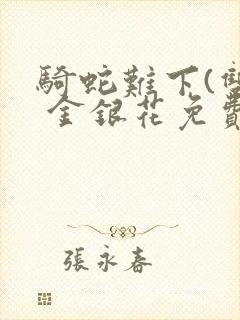 騎蛇難下(雙
金銀花免費
張永春